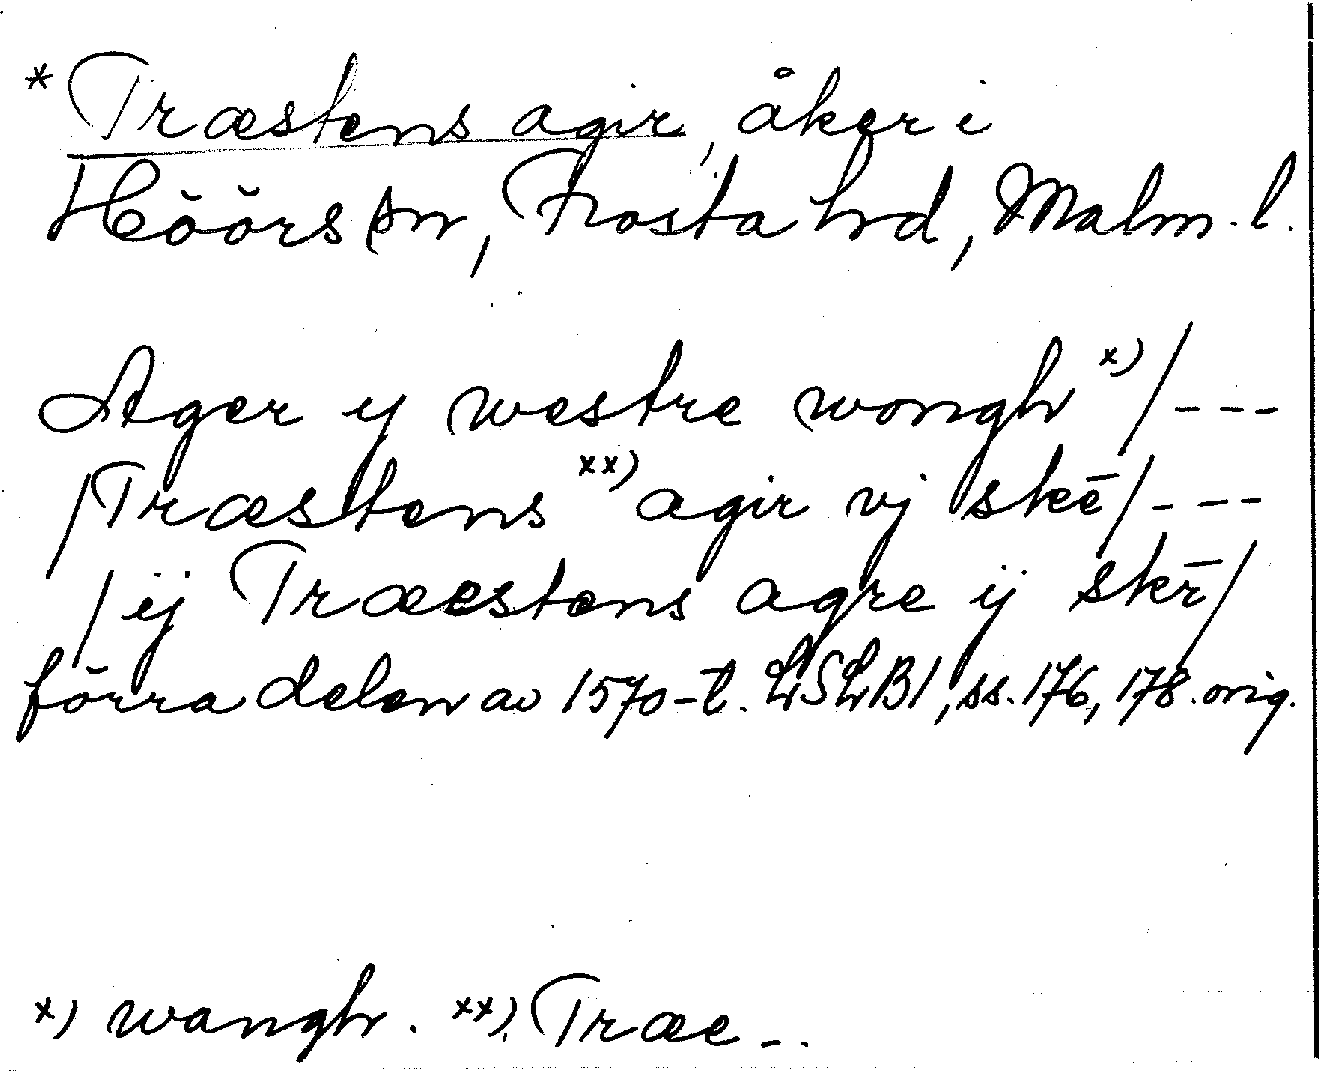 * Træstens agir, åker i
Höörs sn, Frosta hrd, Malm. l.
Ager y westre wongh x) / ---
/ Træstens xx) agir vj skē / ---
/ ij Træestens agre ij skē /
förra delen av 1570-t. LSLB1, ss. 176, 178. orig.
x) wangh. xx) Træe -.